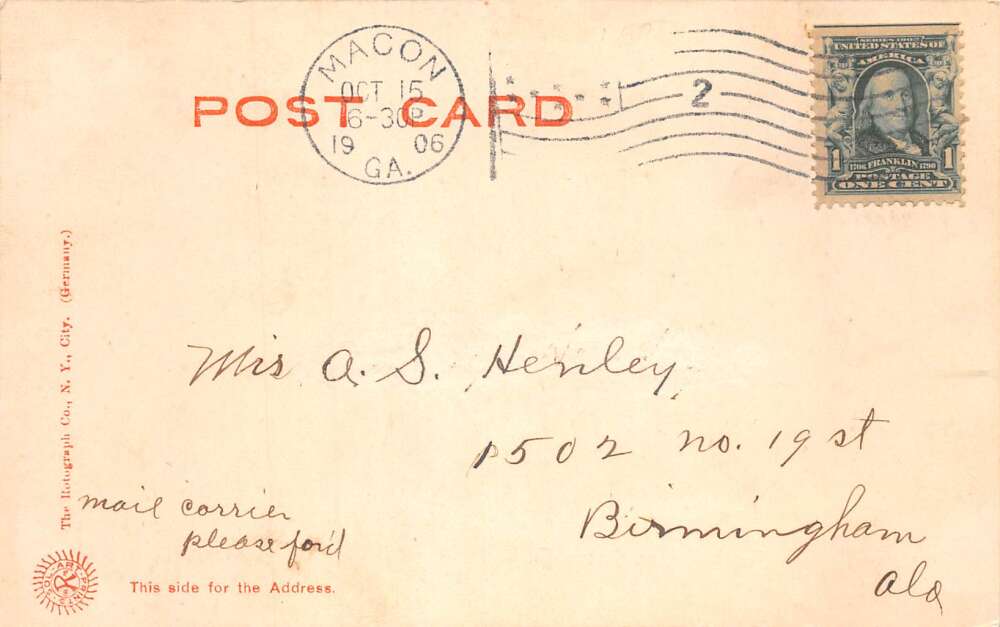 POST CARD
MACON
OCT 15
6-30P
19 06
GA.
2
SERIES 1902
UNITED STATES OF
AMERICA
1 1706 FRANKLIN 1790 1
POSTAGE
ONE CENT
The Rotograph Co., N. Y., City. (Germany.)
Mrs A. S. Henley
1502 no. 19 st
Birmingham
Ala
mail carrier
please for'd
This side for the Address.